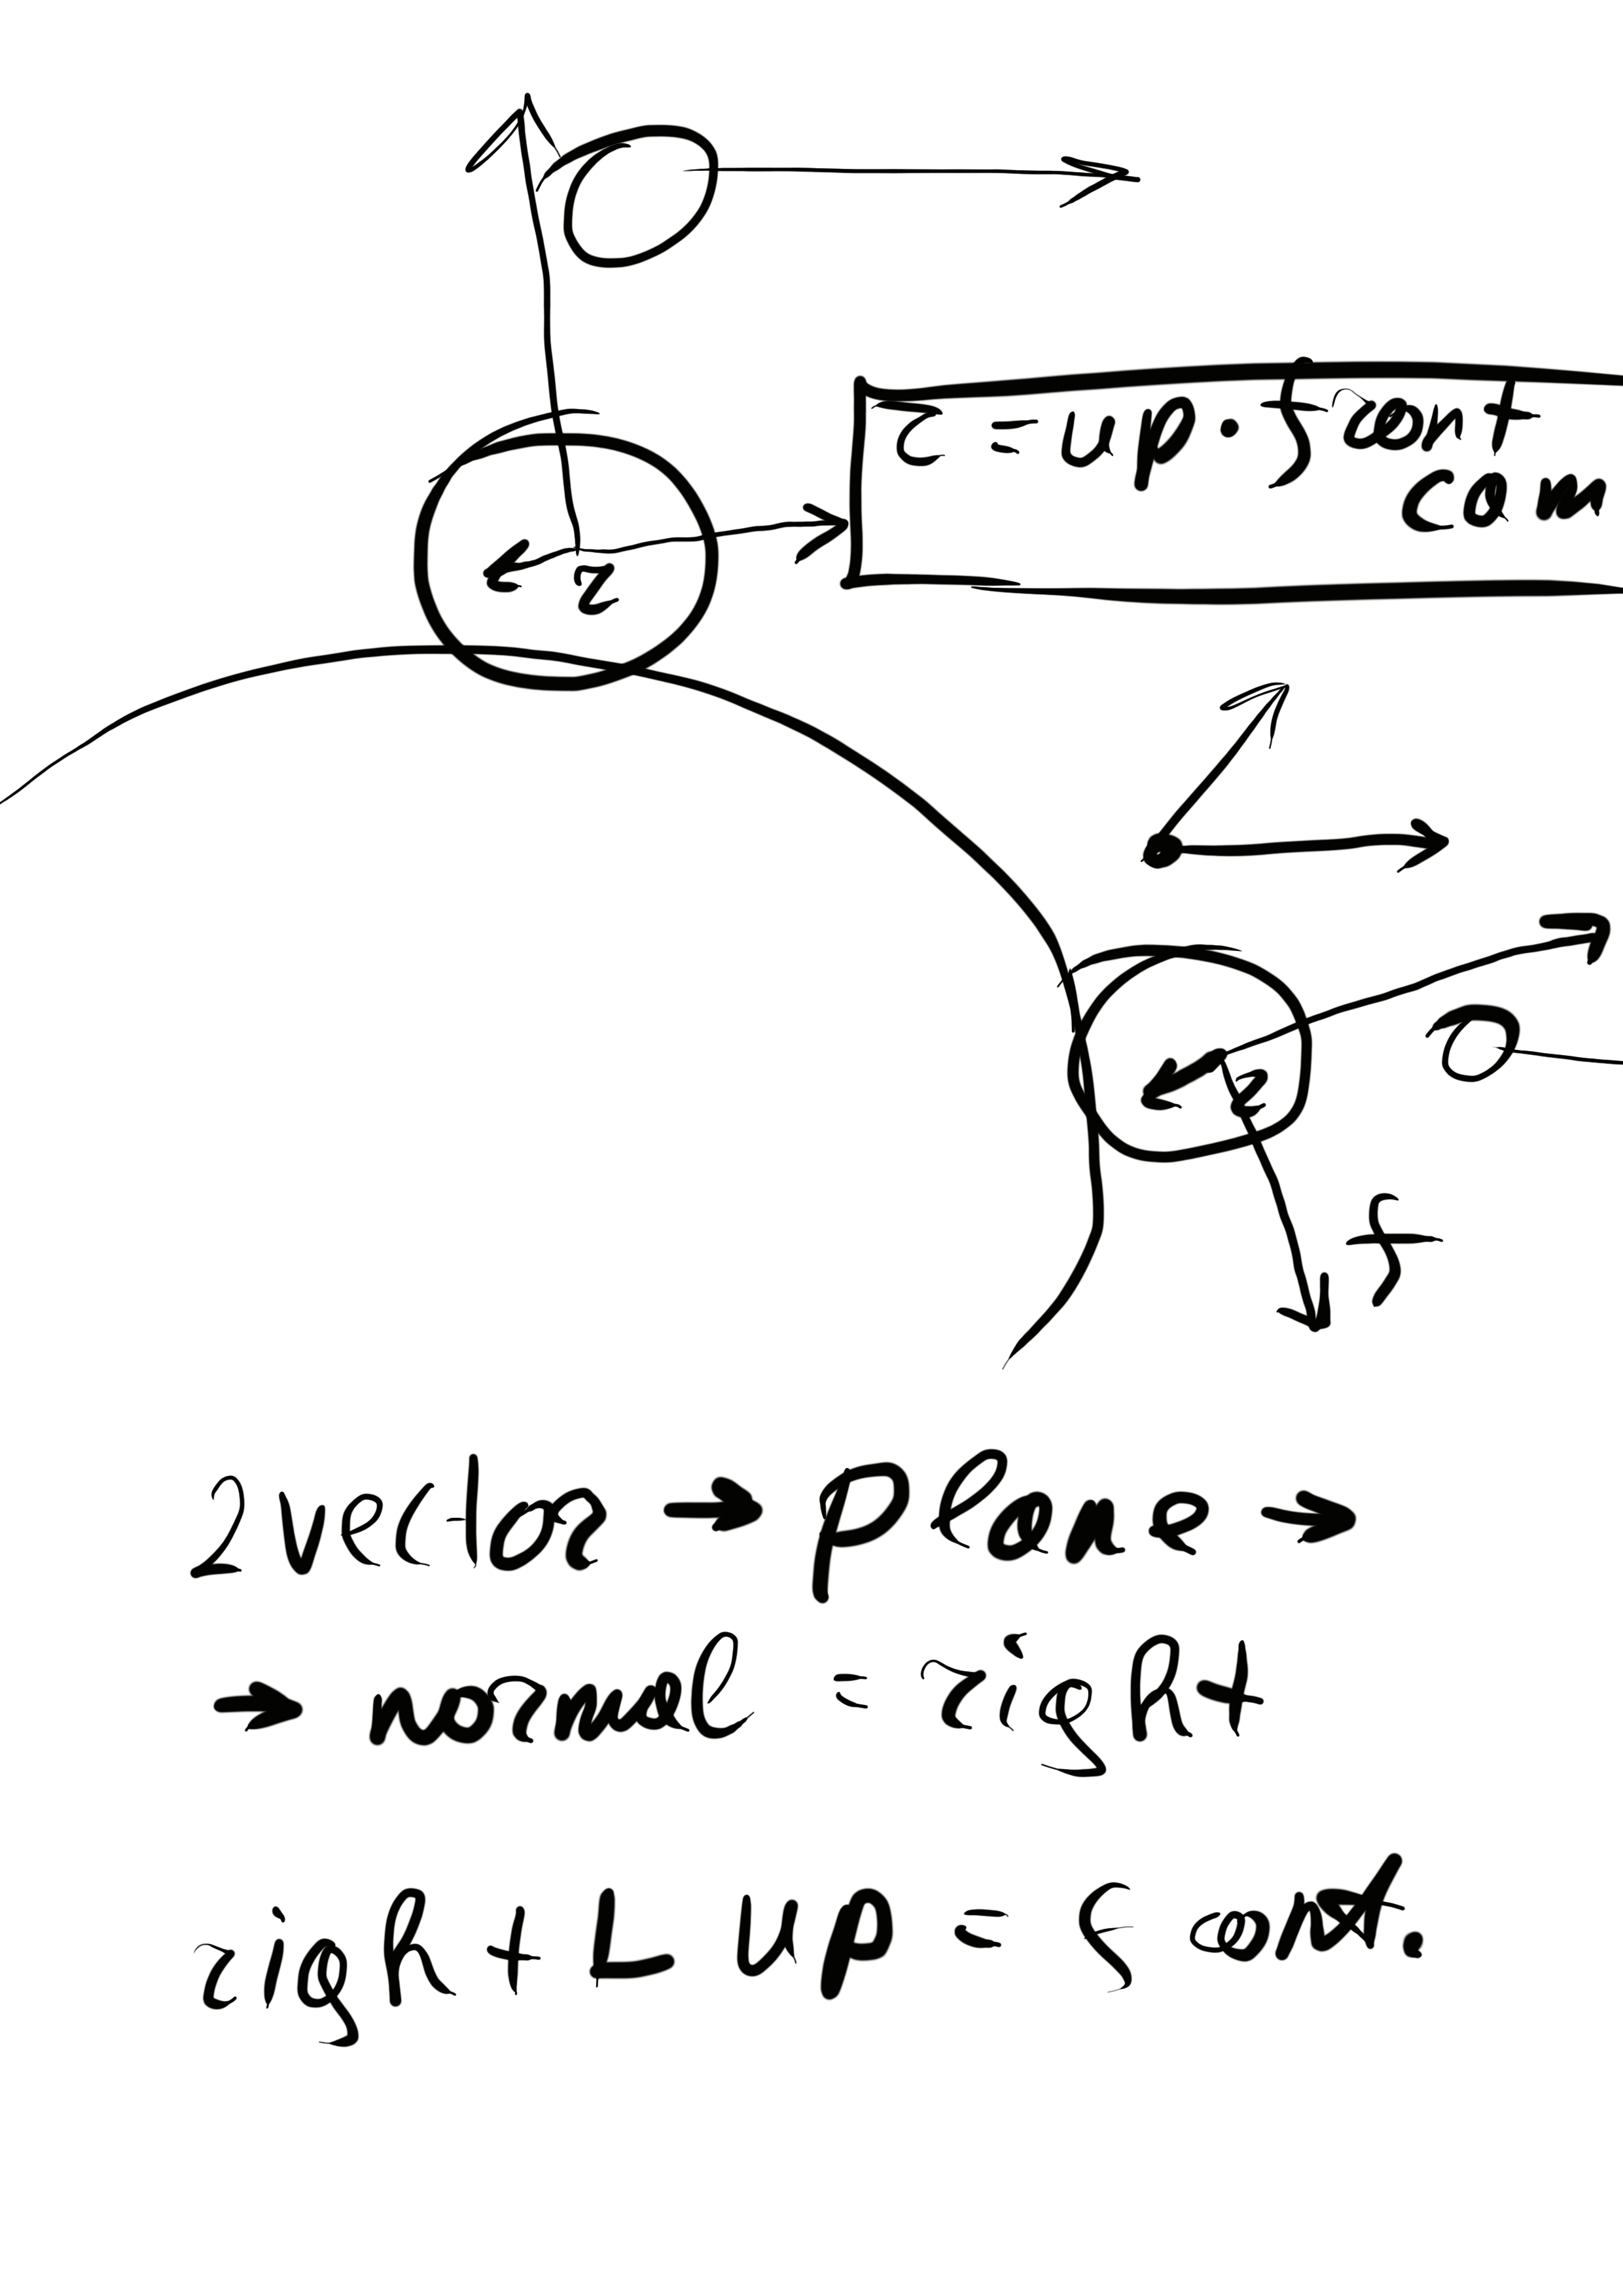 r = up · front
cam
r
r
f
2 vector → plane →
→ normal = right
right L up = front.